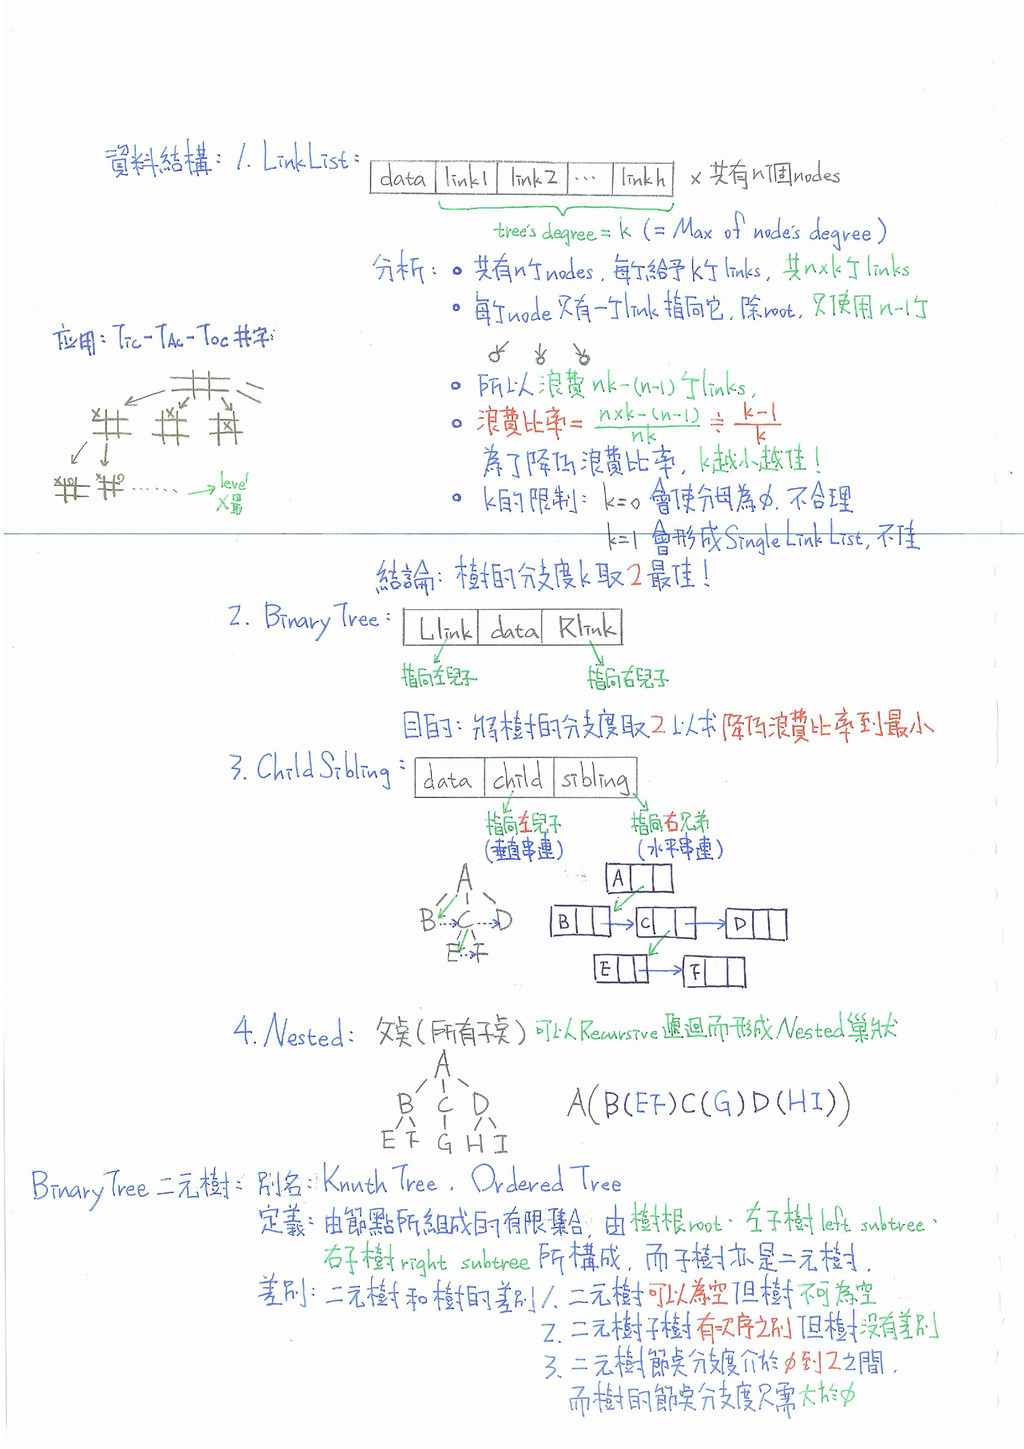 資料結構: 1. Link List:
data link1 link2 ... link k × 共有n個nodes
tree's degree = k (= Max of node's degree)
分析: • 共有n个nodes, 每个給予k个links, 共n×k个links
• 每个node只有一个link指向它, 除root, 只使用n-1个
应用: Tic-Tac-Toc 井字:
• 所以浪費nk-(n-1)个links,
• 浪費比率= n×k-(n-1)/nk ≑ k-1/k
為了降低浪費比率, k越小越佳!
x x x
x o x o
...... → level
• k的限制: k=0 會使分母為ø, 不合理
k=1 會形成Single Link List, 不佳
結論: 樹的分支度k取2最佳!
2. Binary Tree: Llink data Rlink
指向左兒子 指向右兒子
目的: 將樹的分支度取2以求降低浪費比率到最小
3. Child Sibling: data child sibling
指向左兒子 指向右兄弟
(垂直串連) (水平串連)
A A
B C D B C D
E F E F
4. Nested: 父奌(所有子奌)可以Recursive遞迴而形成Nested巢狀
A
B C D A(B(EF)C(G)D(HI))
E F G H I
Binary Tree 二元樹: 別名: Knuth Tree. Ordered Tree
定義: 由節點所組成的有限集合, 由樹根root、左子樹left subtree、
右子樹right subtree所構成, 而子樹亦是二元樹.
差別: 二元樹和樹的差別 1. 二元樹可以為空但樹不可為空
2. 二元樹子樹有次序之別但樹沒有差別
3. 二元樹節奌分支度介於ø到2之間,
而樹的節奌分支度只需大於ø